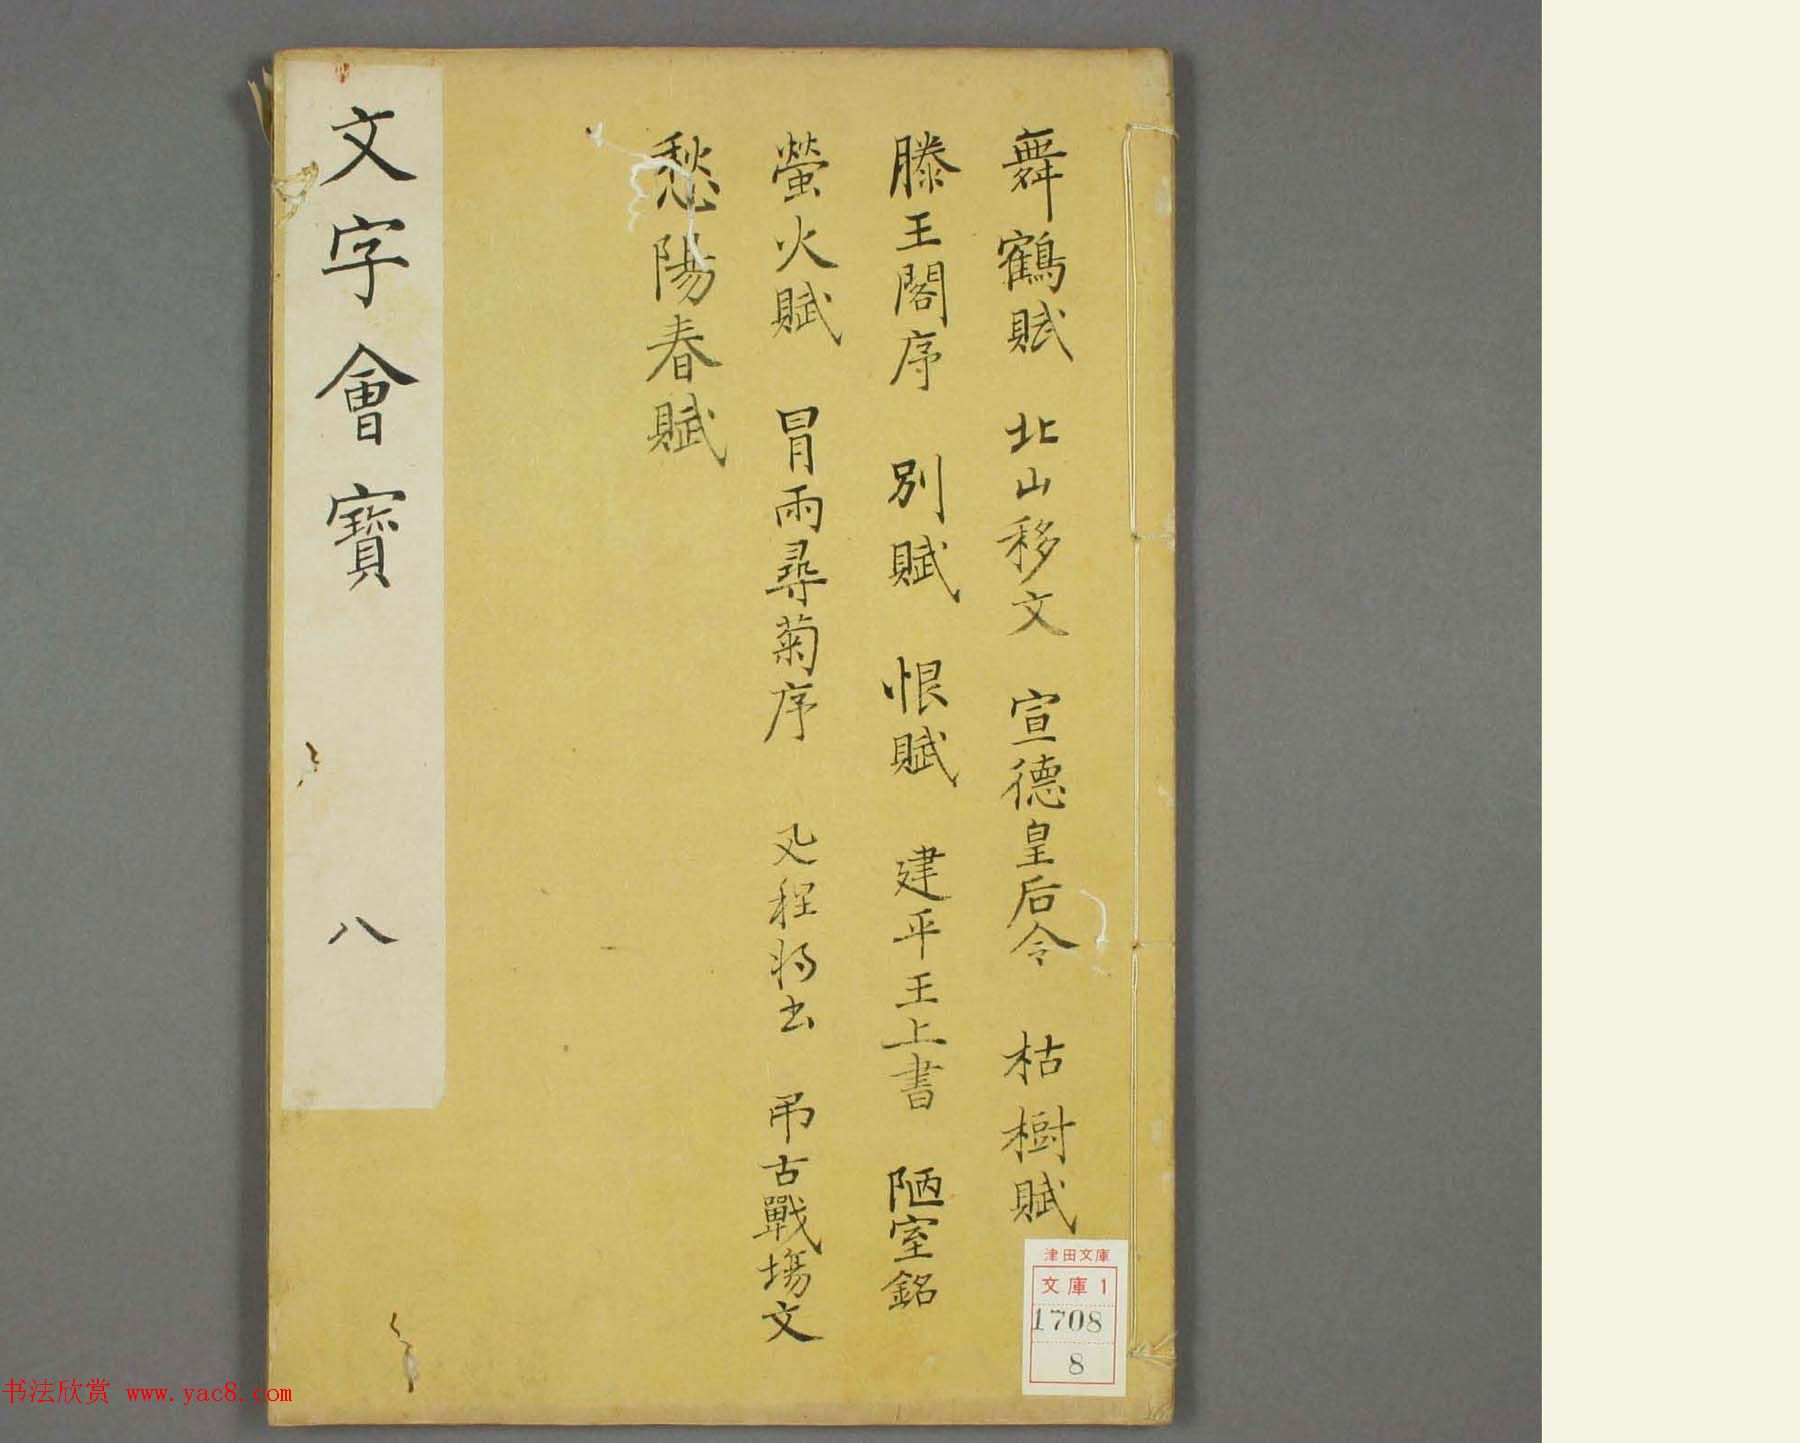 文字會寳 八
舞鶴賦 北山移文 宣德皇后令 枯樹賦
滕王閣序 別賦 恨賦 建平王上書 陋室銘
螢火賦 冒雨尋菊序 程将 弔古戰塲文
愁陽春賦
津田文庫
文庫1
1708
8
书法欣赏 www.yac8.com